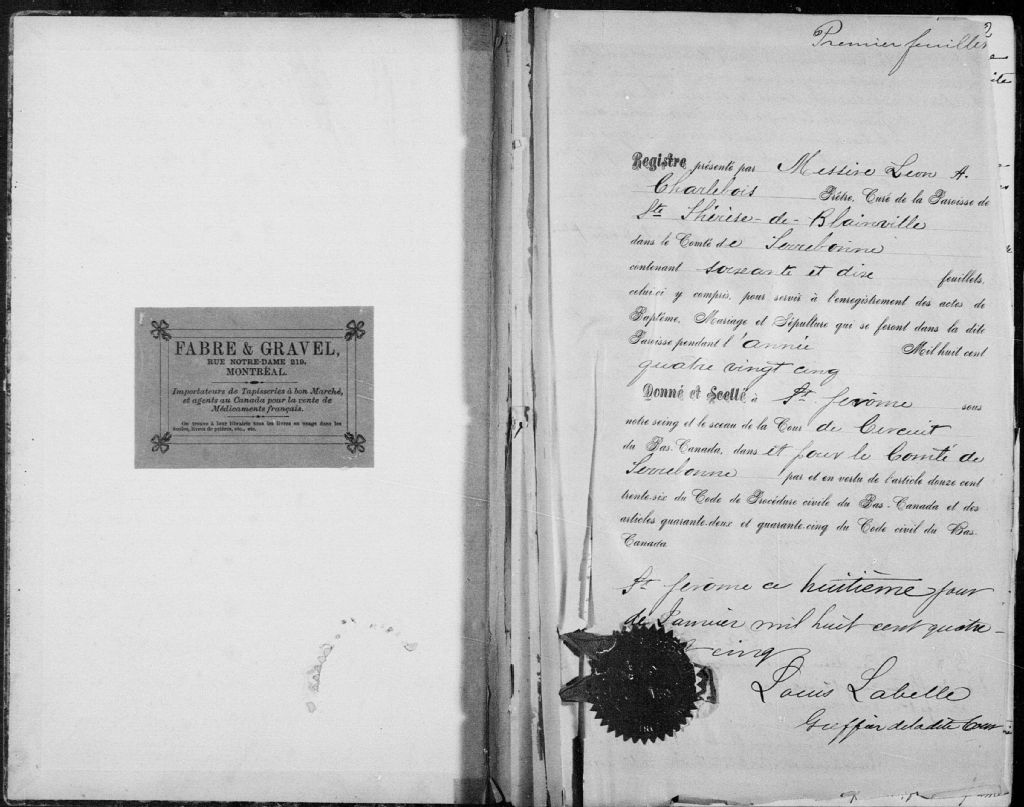 FABRE & GRAVEL,
RUE NOTRE-DAME 219.
MONTRÉAL.
Importateurs de Tapisseries à bon Marché,
et agents au Canada pour la vente de
Médicaments français.
On trouve à leur librairie tous les livres en usage dans les
écoles, livres de prières, etc., etc.
2
Premier feuillet
Registre présenté par Messire Léon A.
Charlebois Prêtre, Curé de la Paroisse de
Ste Thérèse-de-Blainville
dans le Comté de Terrebonne
contenant soixante et dix feuillets,
celui-ci y compris, pour servir à l'enregistrement des actes de
Baptême, Mariage et Sépulture qui se feront dans la dite
Paroisse pendant l'année Mil huit cent
quatre vingt cinq
Donné et Scellé à St. Jérôme sous
notre seing et le sceau de la Cour de Circuit
du Bas-Canada, dans et pour le Comté de
Terrebonne par et en vertu de l'article douze cent
trente-six du Code de Procédure civile du Bas-Canada et des
articles quarante-deux et quarante-cinq du Code civil du Bas-
Canada
St Jerome ce huitième jour
de Janvier mil huit cent quatre-
cinq
Louis Labelle
Greffier de la dite Cour